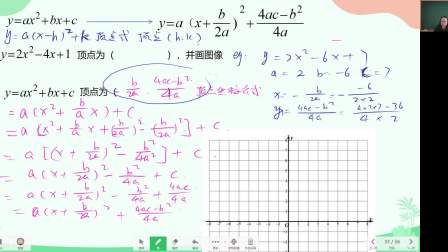 y=ax²+bx+c → y=a(x+b/2a)²+(4ac-b²)/4a
y=a(x-h)²+k 顶点式 顶点(h.k)
y=2x²-4x+1 顶点为( )，并画图像
eg. y=2x²-6x+7
a=2 b=-6 c=7
x=-b/2a=-(-6)/(2×2)
y=(4ac-b²)/4a=(4×2×7-36)/(4×2)
y=ax²+bx+c 顶点为(-b/2a . (4ac-b²)/4a)
=a(x²+b/a x)+c
=a[x²+b/a x+(b/2a)²-(b/2a)²]+c
=a[(x+b/2a)²-b²/4a²]+c
=a(x+b/2a)²-b²/4a+c
=a(x+b/2a)²-b²/4a+4ac/4a
=a(x+b/2a)²+(4ac-b²)/4a